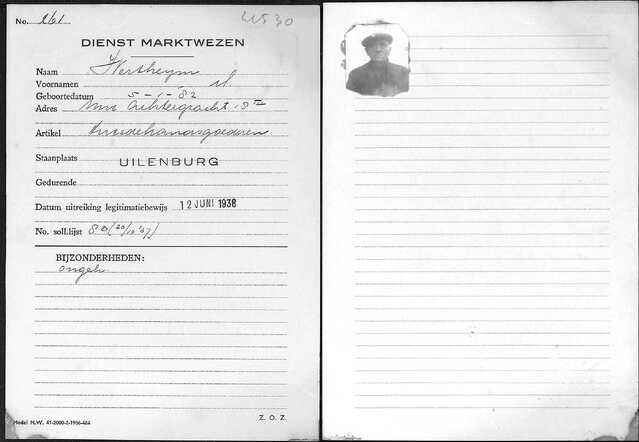 No. 261
4530
DIENST MARKTWEZEN
Naam Wertheym
Voornamen M
Geboortedatum 5-1-'82
Adres Nwe Achtergracht 18 III
Artikel tweedehandsgoederen
Staanplaats UILENBURG
Gedurende
Datum uitreiking legitimatiebewijs 12 JUNI 1938
No. soll.lijst 80 (20/10 '37)
BIJZONDERHEDEN:
ongeh.
Model M.W. 41-2000-2-1936-464
Z. O. Z.